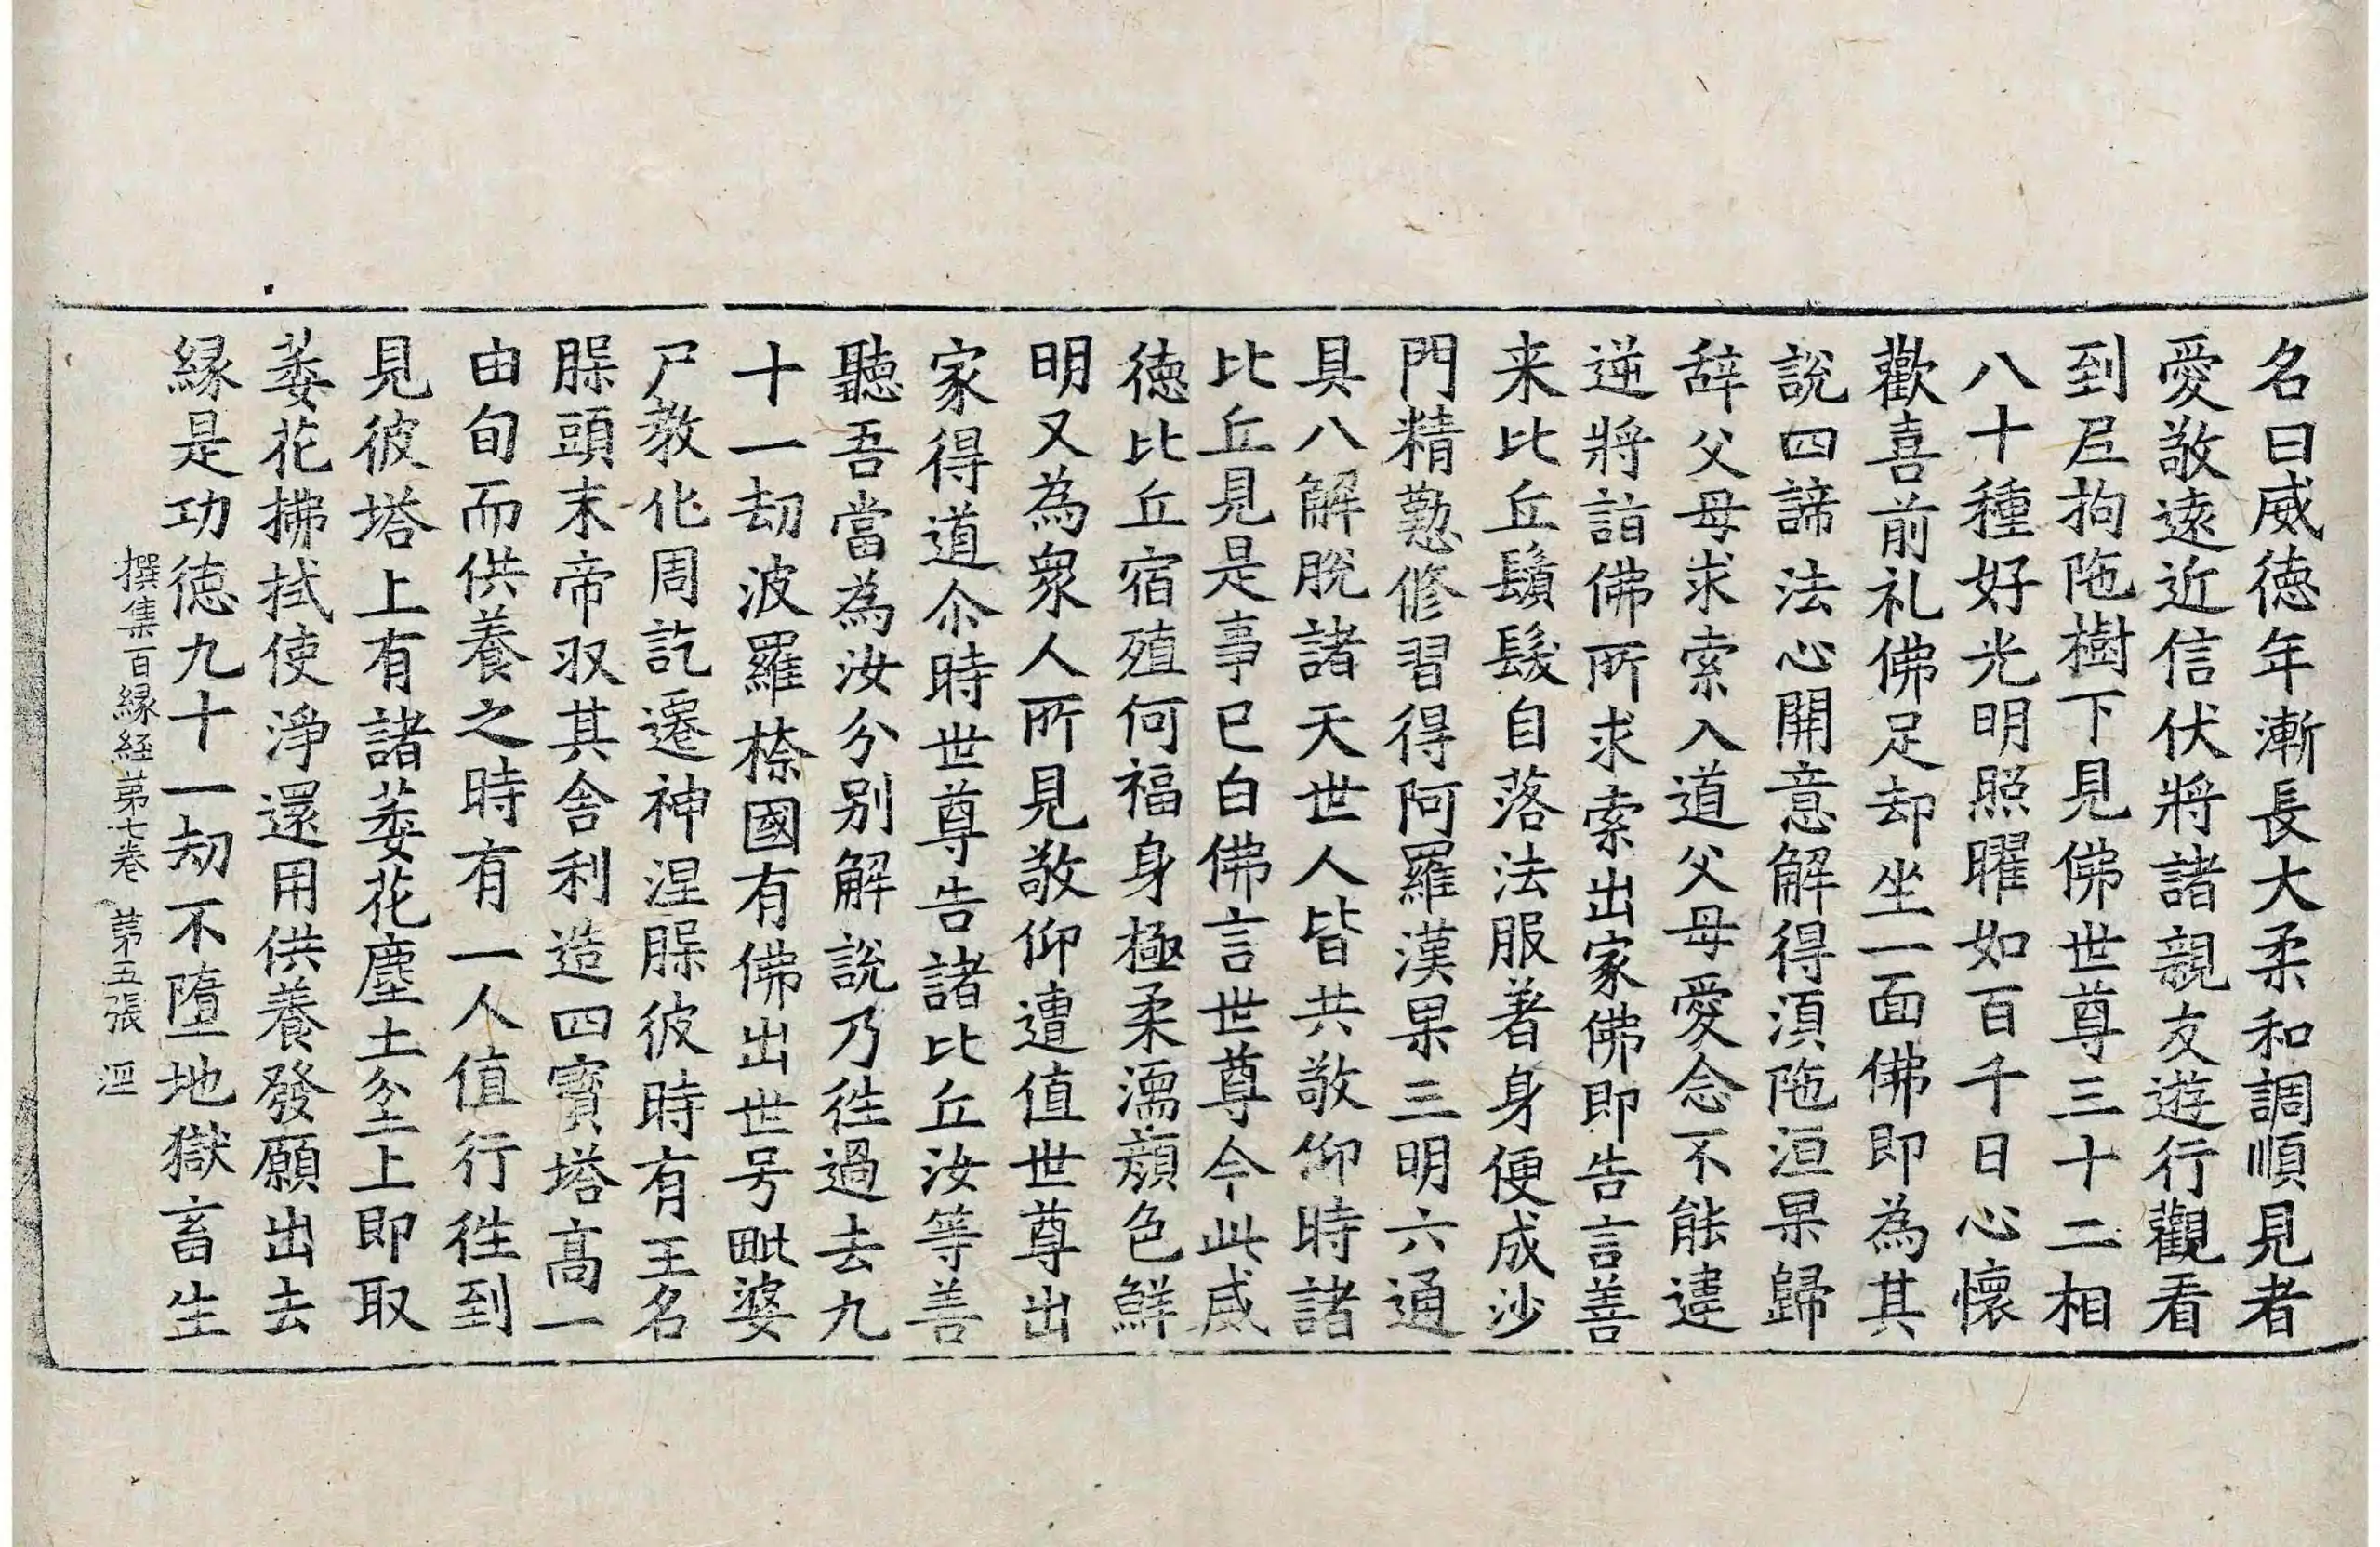 名曰威徳年漸長大柔和調順見者
愛敬遠近信伏將諸親友遊行觀看
到尼拘陁樹下見佛世尊三十二相
八十種好光明照曜如百千日心懷
歡喜前礼佛足却坐一面佛即為其
說四諦法心開意解得湏陁洹果歸
辞父母求索入道父母愛念不能違
逆將詣佛所求索出家佛即告言善
来比丘鬚髮自落法服著身便成沙
門精懃修習得阿羅漢果三明六通
具八解脫諸天世人皆共敬仰時諸
比丘見是事已白佛言世尊今此威
徳比丘宿殖何福身極柔濡顏色鮮
明又為衆人所見敬仰遭值世尊出
家得道尒時世尊告諸比丘汝等善
聽吾當為汝分別解說乃徃過去九
十一劫波羅㮈國有佛出世号毗婆
尸教化周訖遷神涅槃彼時有王名
槃頭末帝収其舍利造四寶塔高一
由旬而供養之時有一人值行徃到
見彼塔上有諸萎花塵土坌上即取
萎花拂拭使淨還用供養發願出去
緣是功徳九十一劫不墮地獄畜生
撰集百緣経苐七卷 苐五張